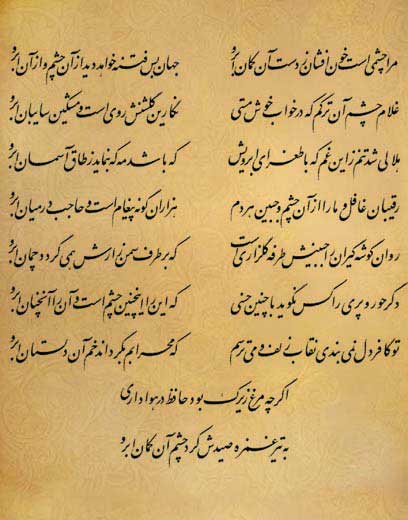 مرا چشمی است خون افشان ز دست آن کمان ابرو جهان بس فتنه خواهد دید از آن چشم و از آن ابرو
غلام چشم آن ترکم که در خواب خوش مستی نگارین گلشنش روی است و مشکین سایبان ابرو
هلالی شد تنم زین غم که با طغرای ابرویش که باشد مه که بنماید ز طاق آسمان ابرو
رقیبان غافل و ما را از آن چشم و جبین هر دم هزاران گونه پیغام است و حاجب در میان ابرو
روان گوشه گیران را جبینش طرفه گلزاری است که بر طرف سمن زارش همی گردد چمان ابرو
دگر حور و پری را کس نگوید با چنین حسنی که این را اینچنین چشم است و آن را آنچنان ابرو
تو کافر دل نمی بندی نقاب زلف و می ترسم که محرابم بگرداند خم آن دلستان ابرو
اگر چه مرغ زیرک بود حافظ در هواداری
به تیر غمزه صیدش کرد چشم آن کمان ابرو